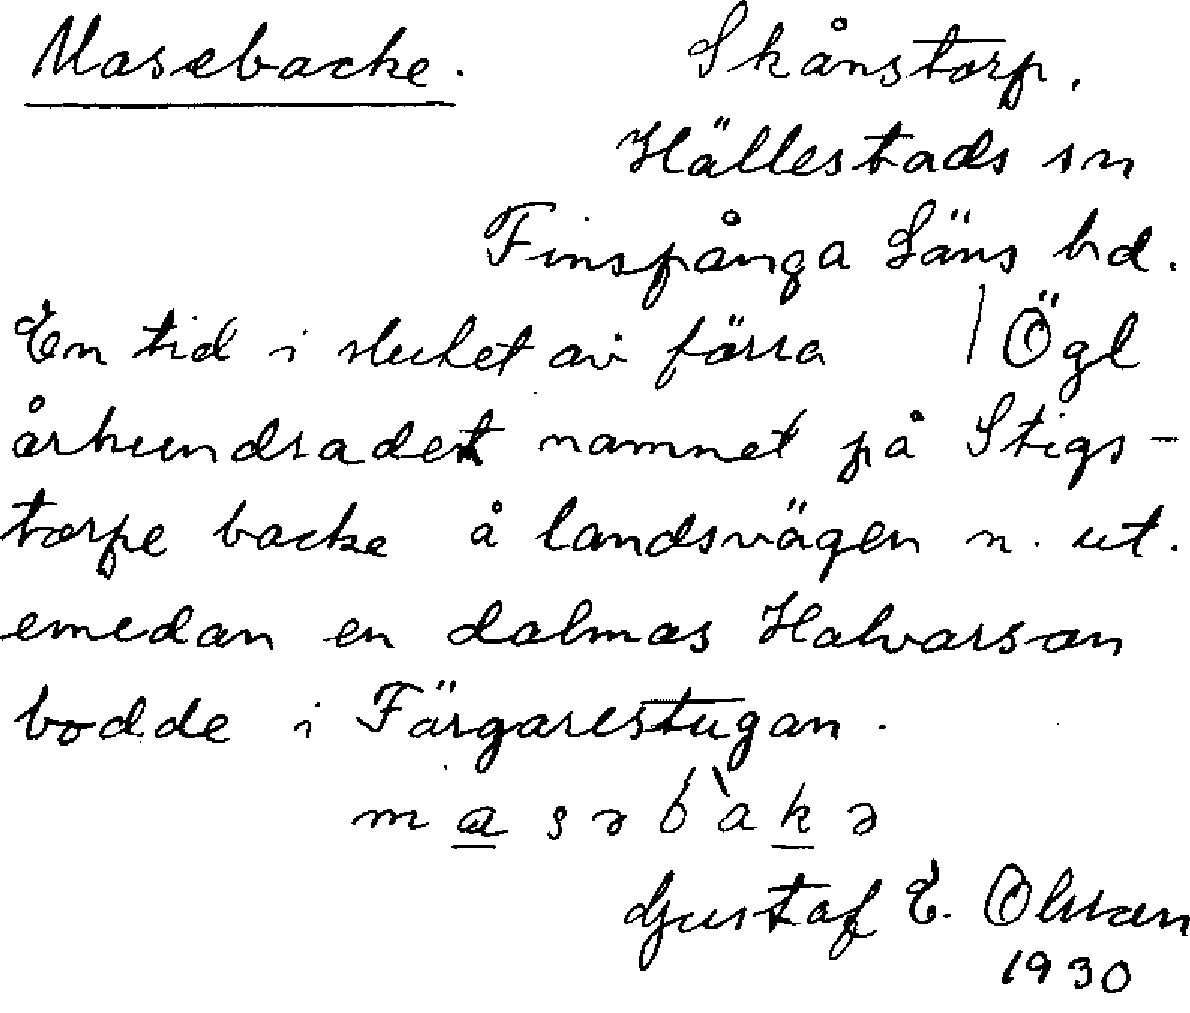 Masebacke. Skånstorp.
Hällestads sn
Finspånga Läns hd.
En tid i slutet av förra | Ögl
århundradet namnet på Stigs-
torpe backe å landsvägen n. ut.
emedan en dalmas Halvarson
bodde i Färgarestugan.
m a s ə b ̀a k ə
Gustaf E. Olsson
1930